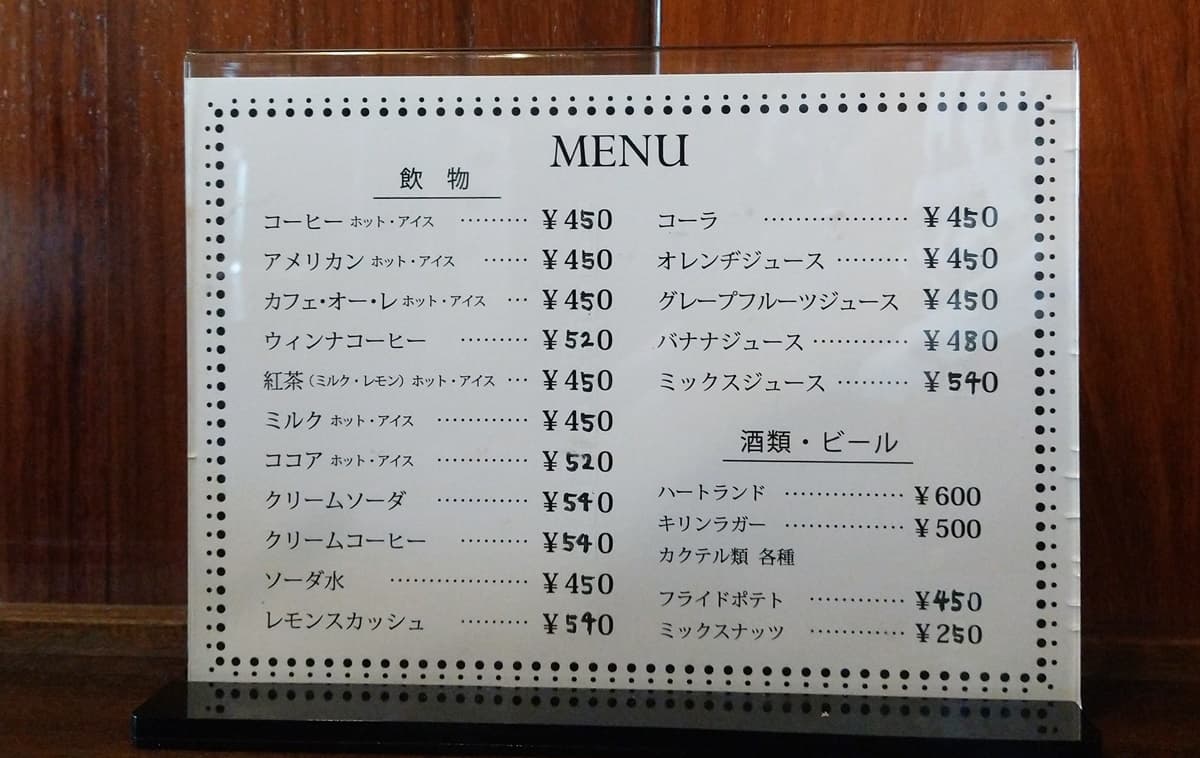 MENU
飲 物
コーヒー ホット・アイス ········· ¥450
アメリカン ホット・アイス ······ ¥450
カフェ・オー・レ ホット・アイス ··· ¥450
ウィンナコーヒー ········· ¥520
紅茶(ミルク・レモン) ホット・アイス ··· ¥450
ミルク ホット・アイス ············ ¥450
ココア ホット・アイス ············ ¥520
クリームソーダ ············ ¥540
クリームコーヒー ········· ¥540
ソーダ水 ·················· ¥450
レモンスカッシュ ········· ¥540
コーラ ·················· ¥450
オレンヂジュース ········· ¥450
グレープフルーツジュース ¥450
バナナジュース ············ ¥480
ミックスジュース ········· ¥540
酒類・ビール
ハートランド ··············· ¥600
キリンラガー ··············· ¥500
カクテル類 各種
フライドポテト ············ ¥450
ミックスナッツ ············ ¥250